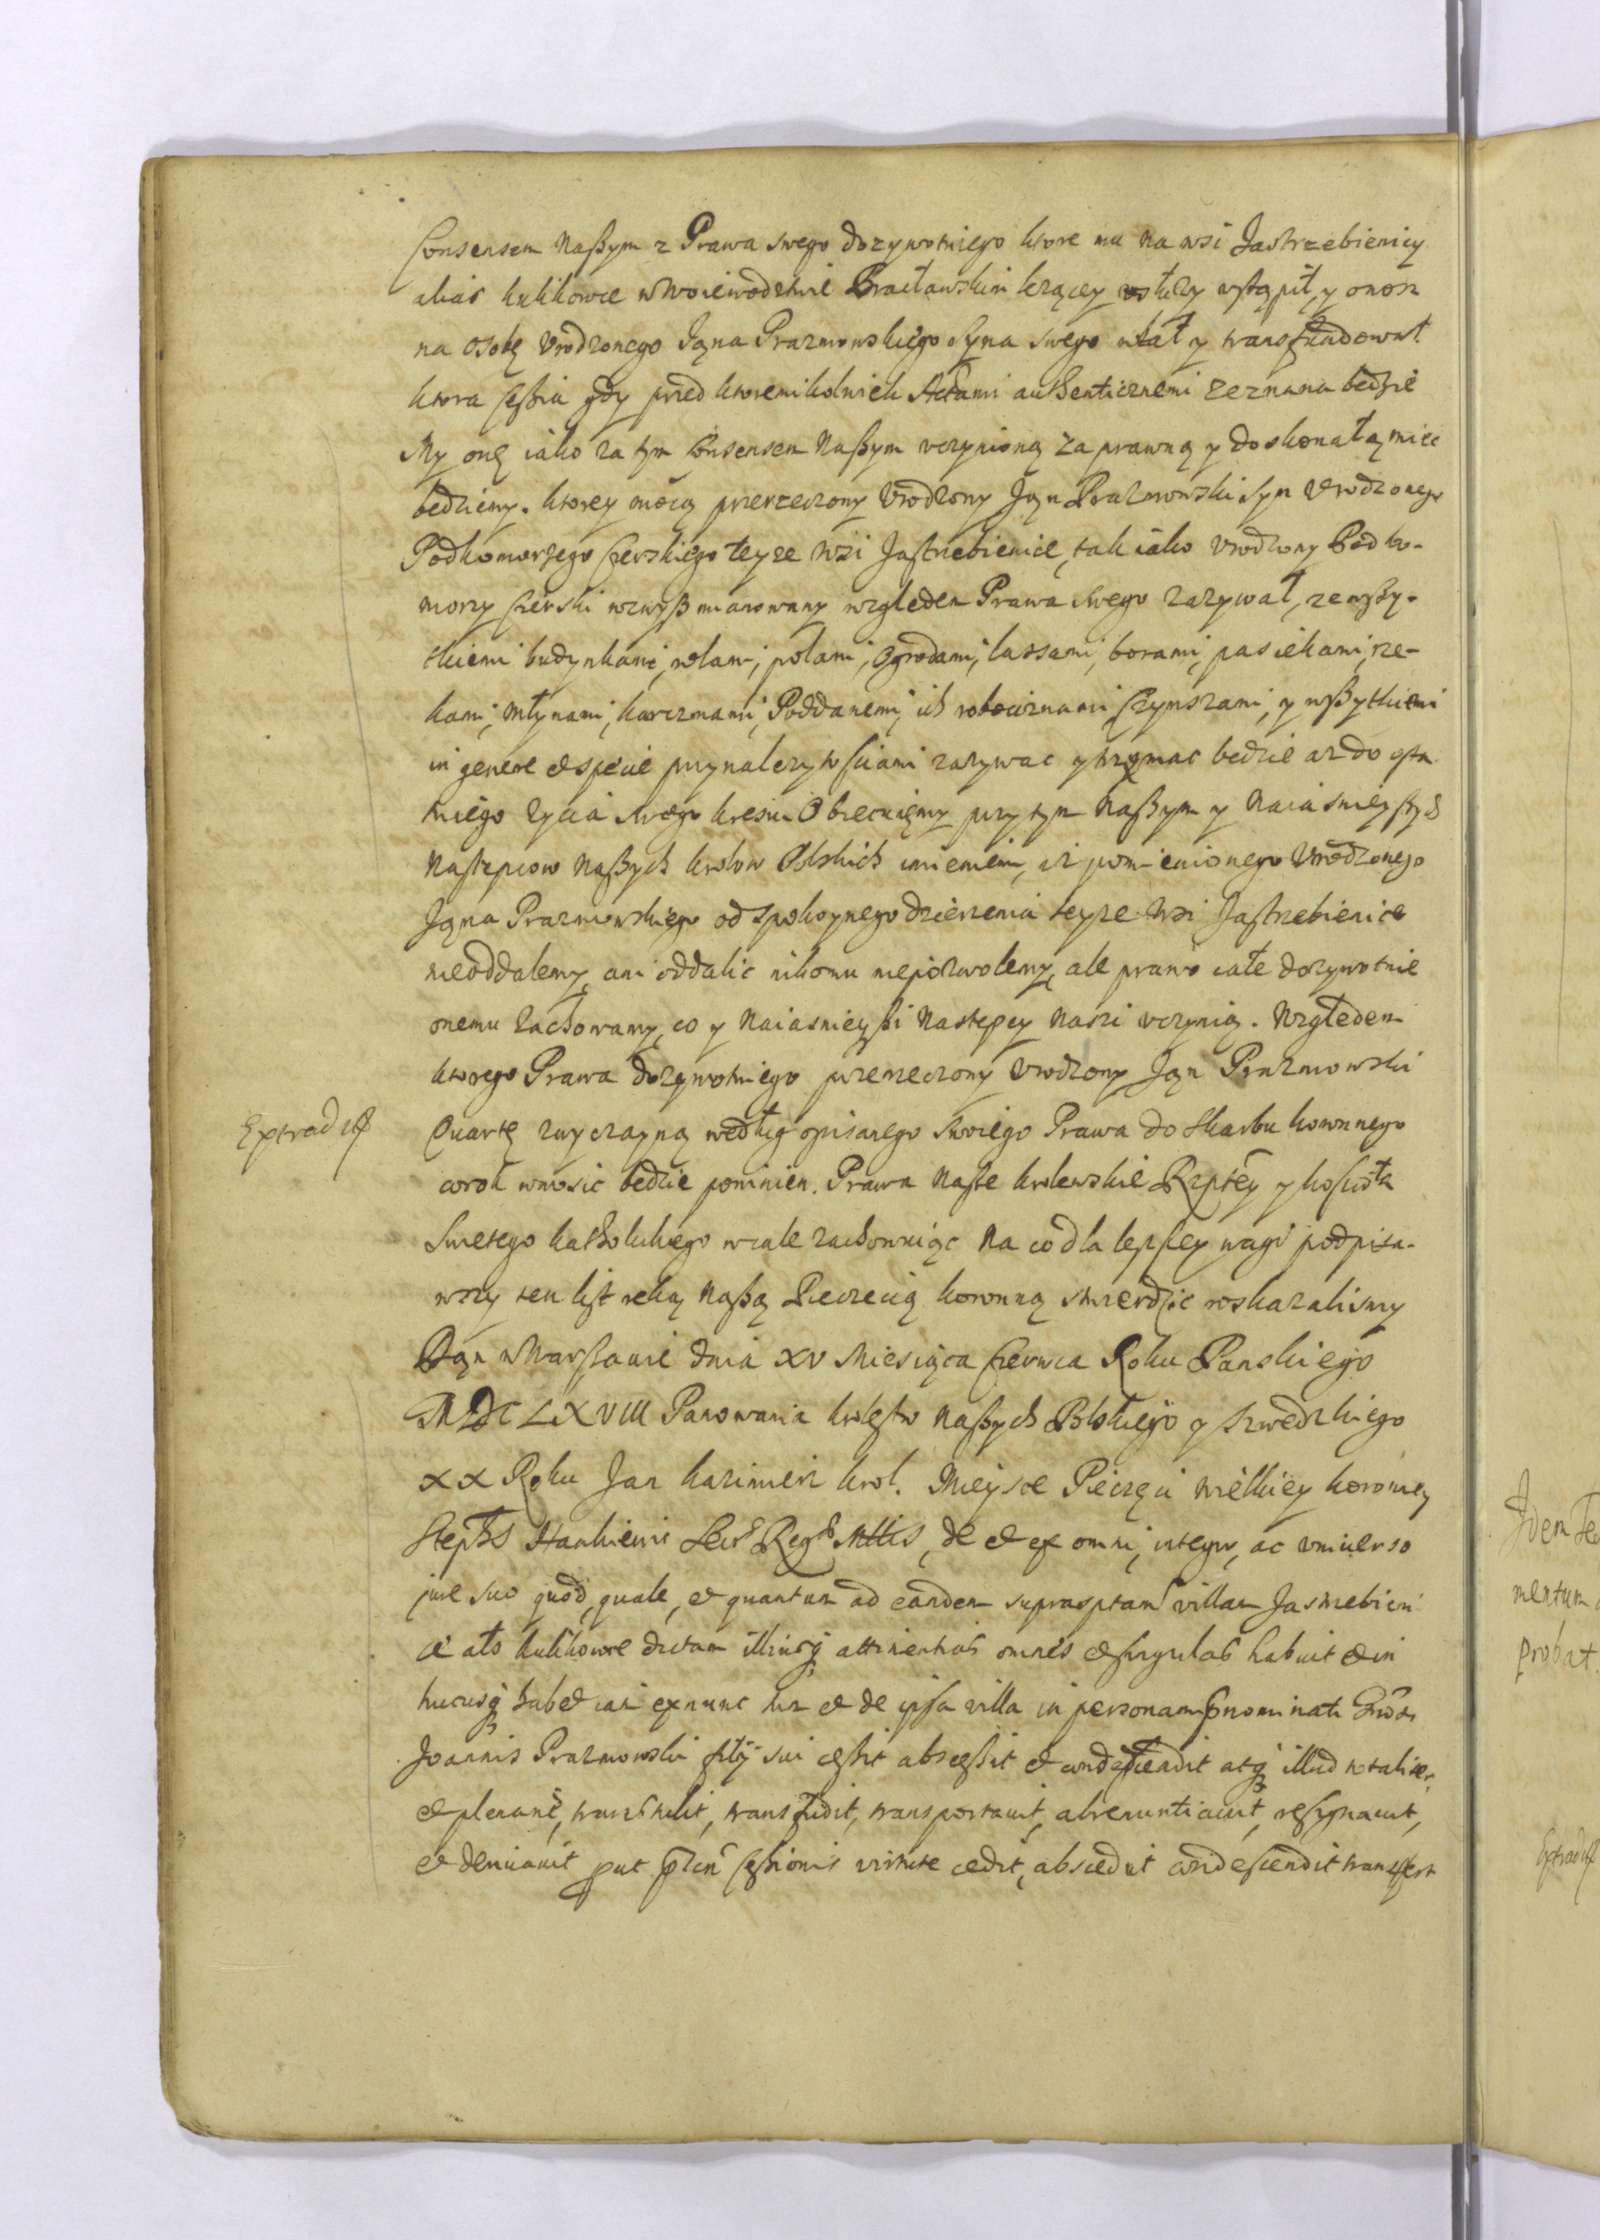 Consensem Naszym z Prawa swego dozywotniego ktore mu na wsi Jastrzebienicy
alias kulikowce w Woiewodztwie Bracławskim lezącey słuzy ustąpił, y onosz
na osobę Vrodzonego Jana Prazmowskiego Syna swego wlał y transfundował
ktora cessia gdy przed ktoremikolwiek Actami authenticznemi zeznana będzie
My onę iako za tym Consensem Naszym vczynioną za prawną y doskonałą miec
bedziemy. ktorey mocą przerzeczony Vrodzony Jan Prazmowski Syn Vrodzonego
Podkomorzego Czerskiego teyze wsi Jastrzebienice, tak iako Vrodzony Podko-
morzy Czerski wzwysz mianowany względem Prawa swego zazywał, ze wszy-
tkiemi budynkami, rolami, polami, Ogrodami, lassami, borami, pasiekami, rze-
kami, Młynami, karczmami, Poddanemi, ich robociznami Czynszami, y wszytkiemi
in genere et specie przynalezytosciami zazywac y trzymac bedzie az do osta
tniego zycia swego kresu Obiecuięmy przy tym Naszym y Naiasnieyszych
Nastepcow Naszych krolow Polskich imieniem, iz pomienionego Vrodzonego
Jana Prazmowskiego od spokoynego dzierzenia teyze Wsi Jastrzebienice
nieoddalemy, ani oddalic nikomu niepozwolemy, ale prawo całe dozywotnie
onemu zachowamy, co y Naiasnieyszi Nastepcy Naszi vczynią. Względem
ktorego Prawa dozywotniego przerzeczony Vrodzony Jan Prazmowski
Extradit
Quartę zwyczayną według opisanego swoiego Prawa do skarbu koronnego
corok wnosic bedzie powinien. Prawa Nasze krolewskie Rzptey y koscioła
Swietego katholickiego wcale zachowuiąc Na co dla lepszey wagi podpisa-
wszy ten list ręką Naszą Pieczecią koronną stwierdzic roskazalismy
Dan w Warszawie dnia XV Miesiąca Czerwca Roku Panskiego
MDCLXVIII Panowania krolestw Naszych Polskiego y Szwedzkiego
XX Roku Jan kazimierz krol. Mieysce Pieczęci wielkiey koronney
Stephs Hankiewic Secr Regs Mttis, de et ex omni, integro, ac vniuerso
jure suo quod, quale, et quantum ad eandem suprasptam villam Jastrzebieni
ce als kulikowce dictam illiusq attinentias omnes et singulas habuit et in
hucusq habet iam exnunc hir et de ipsa villa in personam pnominati Gnosi
Joannis Prazmowski filij sui cessit abscessit et condescendit atq illud totaliter,
et plenarie, transtulit, transfudit, transportauit, abrenuntiauit, resignauit,
et deriuauit prout pntn cessionis virtute cedit, abscedit condescendit transfert
Idem
mentum
probat.
Extradit